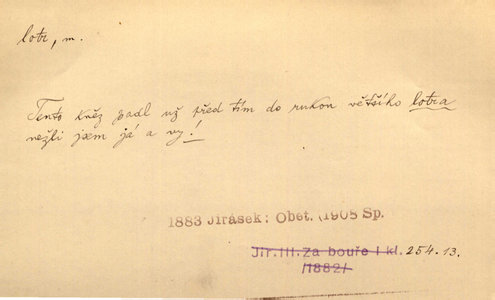 lotr, m.
Tento kněz padl už před tím do rukou většího lotra
nežli jsem já a vy!
1883 Jirásek: Obět. (1905 Sp.
Jir. III. Za bouře I kl. 254.13.
/1882/